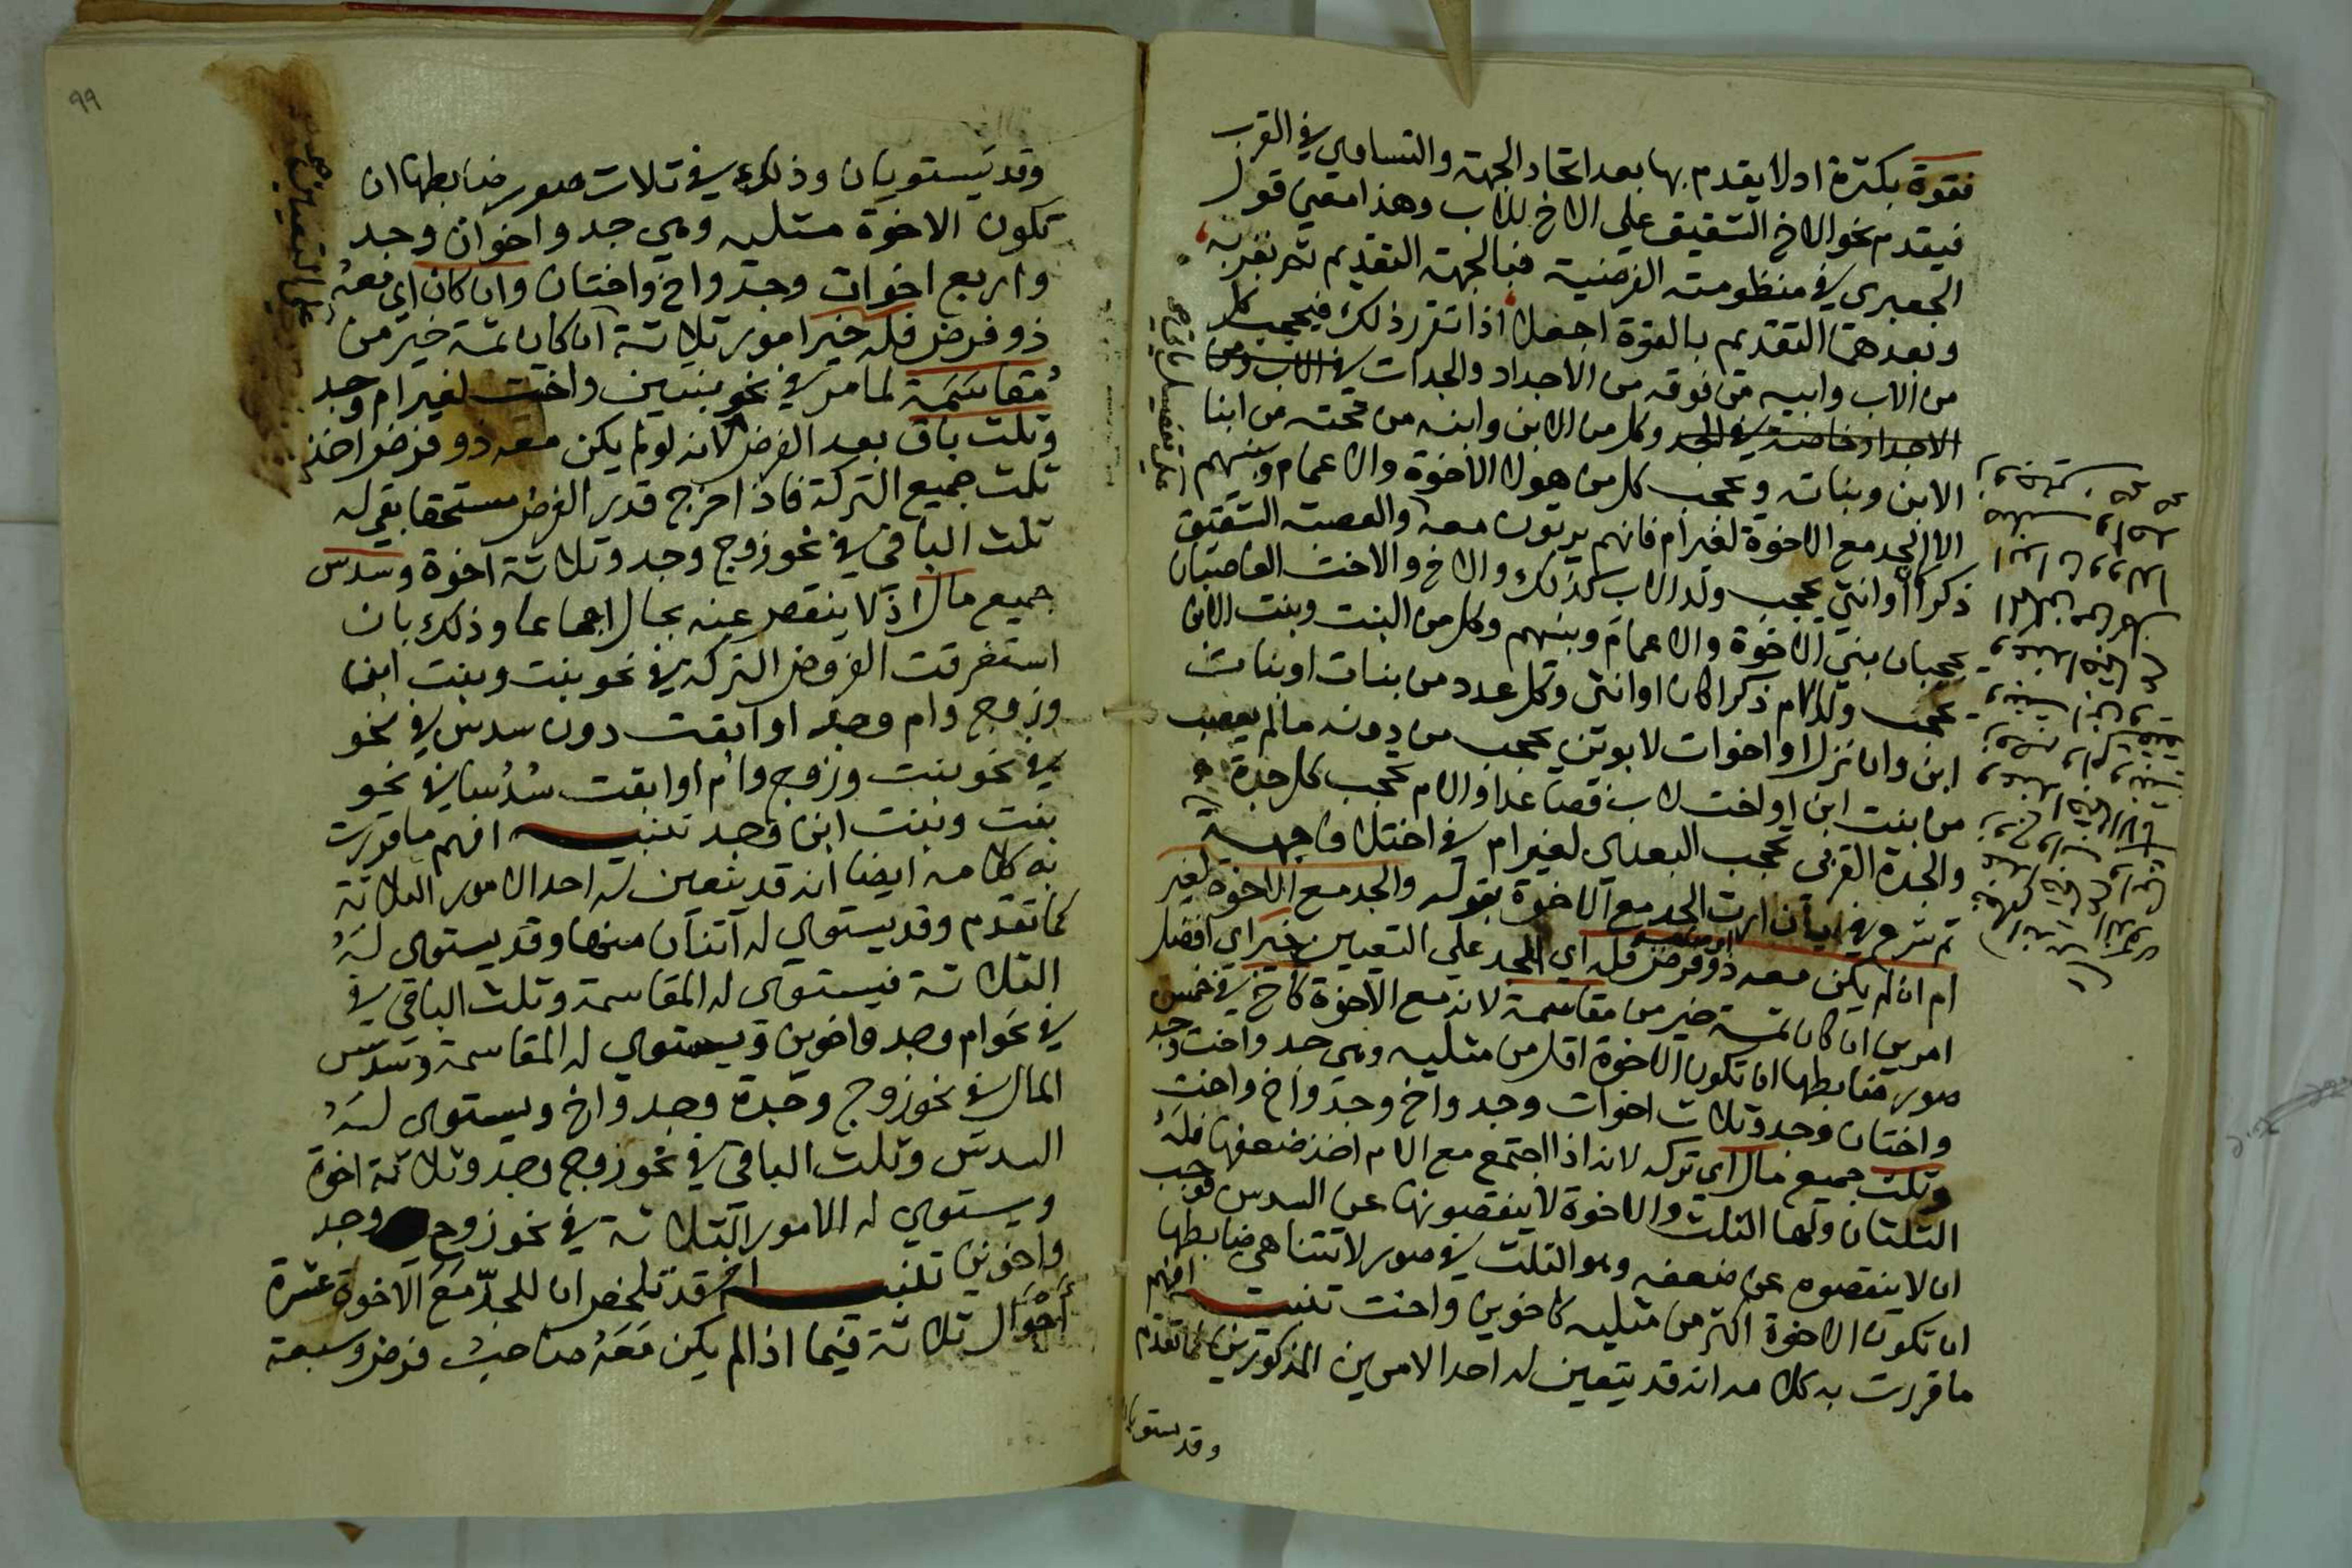 فقوة بكثرة اولا يقدم بها بعد اتحاد الجهة والتساوي في القرب
فيقدم نحو الاخ الشقيق علي الاخ للاب وهذا معني قول
الجعبري في منظومته الفرضية فبالجهة التقديم ثم بقربه
وبعدهما التقديم بالقوة اجعلا اذا تقرر ذلك فيحجب كل
من الاب وابيه من فوقه من الاجداد والجدات في الاب ومن
الاجداد خاصة في الجد وكل من الابن وابنه من تحته من ابنا
الابن وبناته ويحجب كل من هولا الاخوة والاعمام وبنيهم
الا الجد مع الاخوة لغير ام فانهم يرثون معه والعصبة الشقيق
ذكرا او انثي يحجب ولد الاب كذلك والاخ والاخت العاصبان
يحجبان بني الاخوة والاعمام وبنيهم وكل من البنت وبنت الابن
يحجب ولد الام ذكرا كان او انثى وكل عدد من بنات او بنات
ابن وان نزل او اخوات لابوين يحجب من دونه ما لم يعصب
من بنت ابن او اخت لاب فصاعدا والام تحجب كل جدة
والجدة القربى تحجب البعدي لغير ام في اختلاف جهة
ثم شرع في بيان ارث الجد مع الاخوة بقوله والجد مع الاخوة لغير
ام ان لم يكن معه ذو فرض فله اي الجد علي التعيين خير اي افضل
امرين ان كان ثمة خير من مقاسمة لانه مع الاخوة كاخ في خمس
صور ضابطها ان تكون الاخوة اقل من مثليه وهي جد واخت وجد
واختان وجد وثلاث اخوات وجد واخ وجد واخ واخت
وثلث جميع مال اي تركه لانه اذا اجتمع مع الام اخذ ضعفها فله
الثلثان ولها الثلث والاخوة لا ينقصونها عن السدس فوجب
ان لا ينقصوه عن ضعفه وهو الثلث في صور لا تتناهى ضابطها
ان تكون الاخوة اكثر من مثليه كاخوين واخت تنبيه افهم
ما قررت به كلامه انه قد يتعين له احد الامرين المذكورين كما تقدم
وقد يستويان
٩٩
وقد يستويان وذلك في ثلاث صور ضابطها ان
تكون الاخوة مثليه وهي جد واخوان وجد
واربع اخوات وجد واخ واختان وان كان اي معه
ذو فرض فله خير امور ثلاثة ان كان ثمة خير من
مقاسمة لما مر في نحو بنتين واخت لغير ام وجد
وثلث باق بعد الفرض لانه لو لم يكن معه ذو فرض اخذ
ثلث جميع التركة فاذا اخرج قدر الفرض مستحقا بقي له
ثلث الباقي في نحو زوج وجد وثلاثة اخوة وسدس
جميع مال اذ لا ينقص عنه بحال اجماعا وذلك بان
استغرقت الفروض التركة في نحو بنت وبنت ابن
وزوج وام وجد او ابقت دون سدس في نحو
في نحو بنت وزوج وام او ابقت سدسا في نحو
بنت وبنت ابن وجد تنبيه افهم ما قررت
به كلامه ايضا انه قد يتعين له احد الامور الثلاثة
كما تقدم وقد يستوي له اثنان منها وقد يستوى له
الثلاثة فيستوي له المقاسمة وثلث الباقي في
في نحو ام وجد واخوين ويستوي له المقاسمة وسدس
المال في نحو زوج وجدة وجد واخ ويستوى له
السدس وثلث الباقي في نحو زوج وجد وثلاثة اخوة
ويستوي له الامور الثلاثة في نحو زوج وجد
واخوين تنبيه اخر قد تلخص ان للجد مع الاخوة عشرة
احوال ثلاثة فيما اذا لم يكن معه صاحب فرض وسبعة
علي التعيين